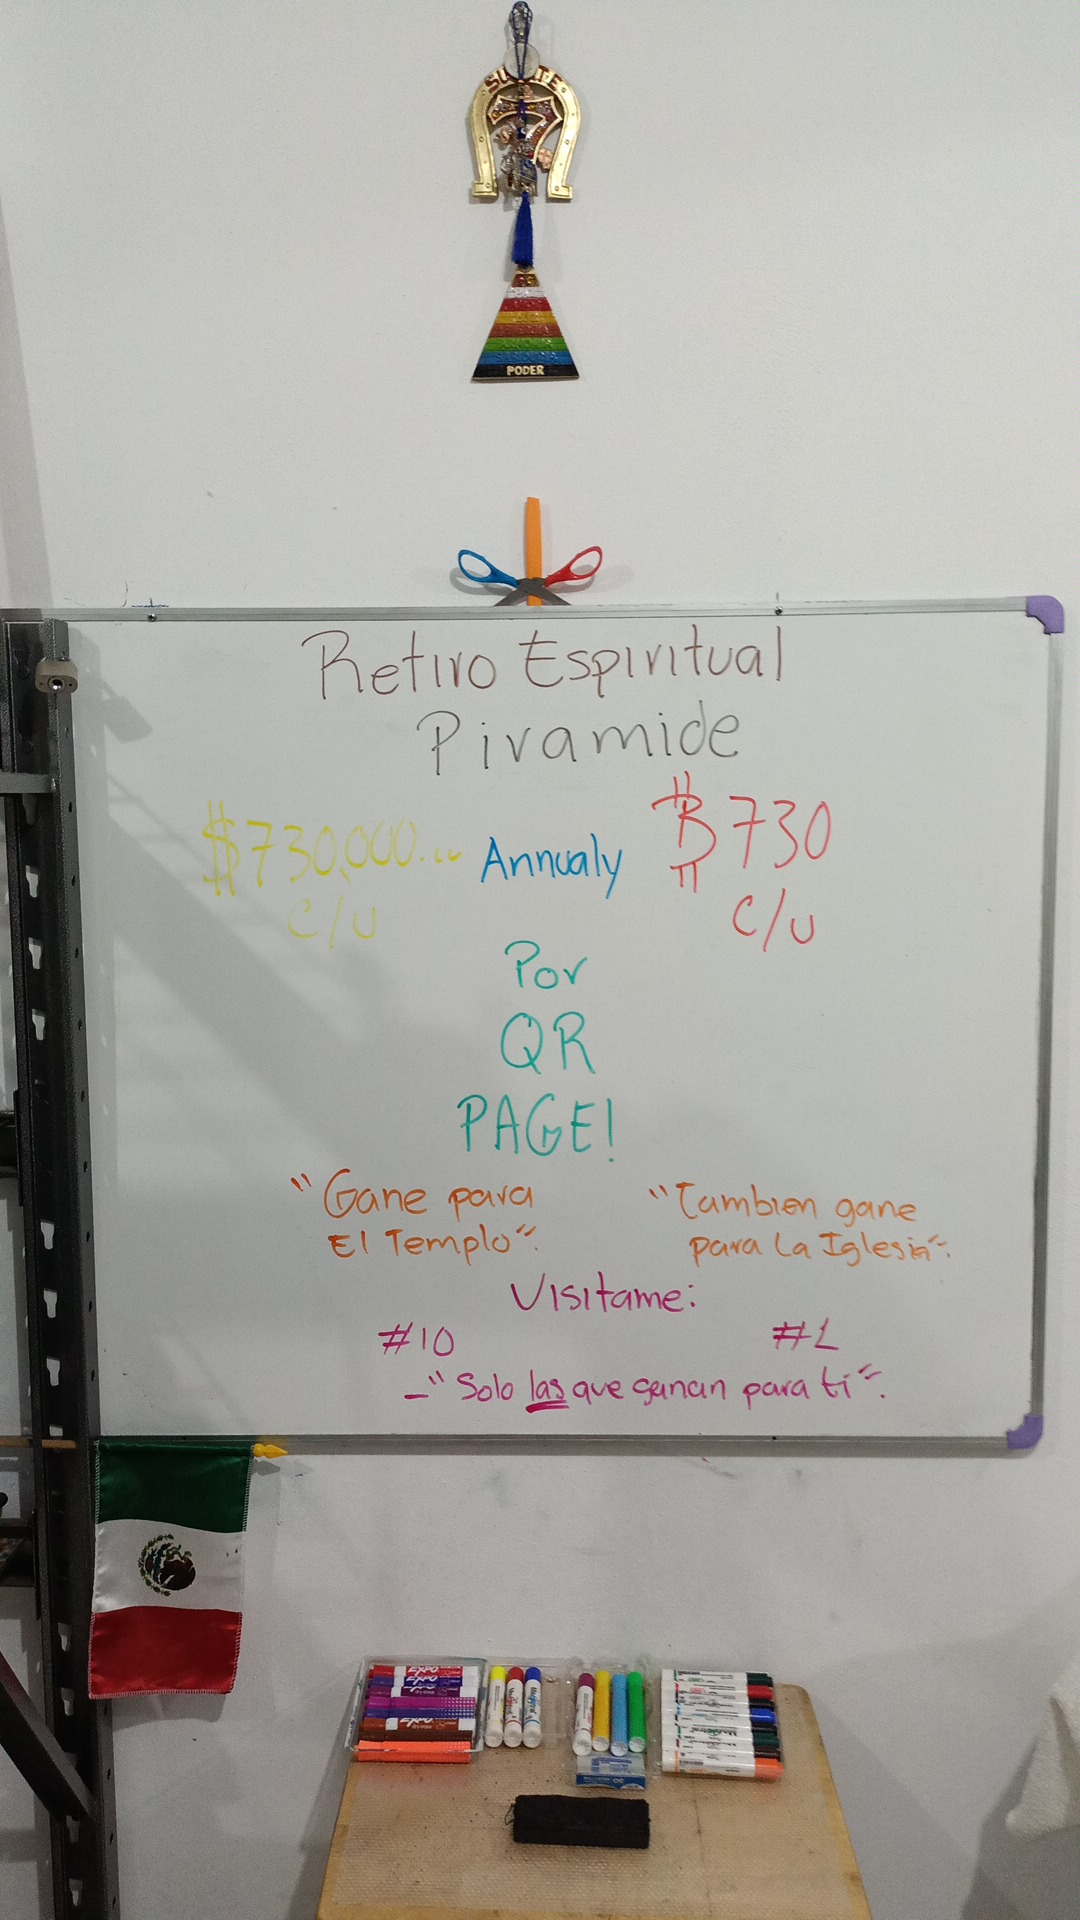 SU TE
7
PODER
Retiro Espiritual
Piramide
$730,000... Annualy ₿730
c/u c/u
Por
QR
PAGE!
"Gane para
El Templo".
"Tambien gane
para La Iglesia".
Visitame:
#10 #1
-"Solo las que ganan para ti".
EXPO
EXPO
EXPO